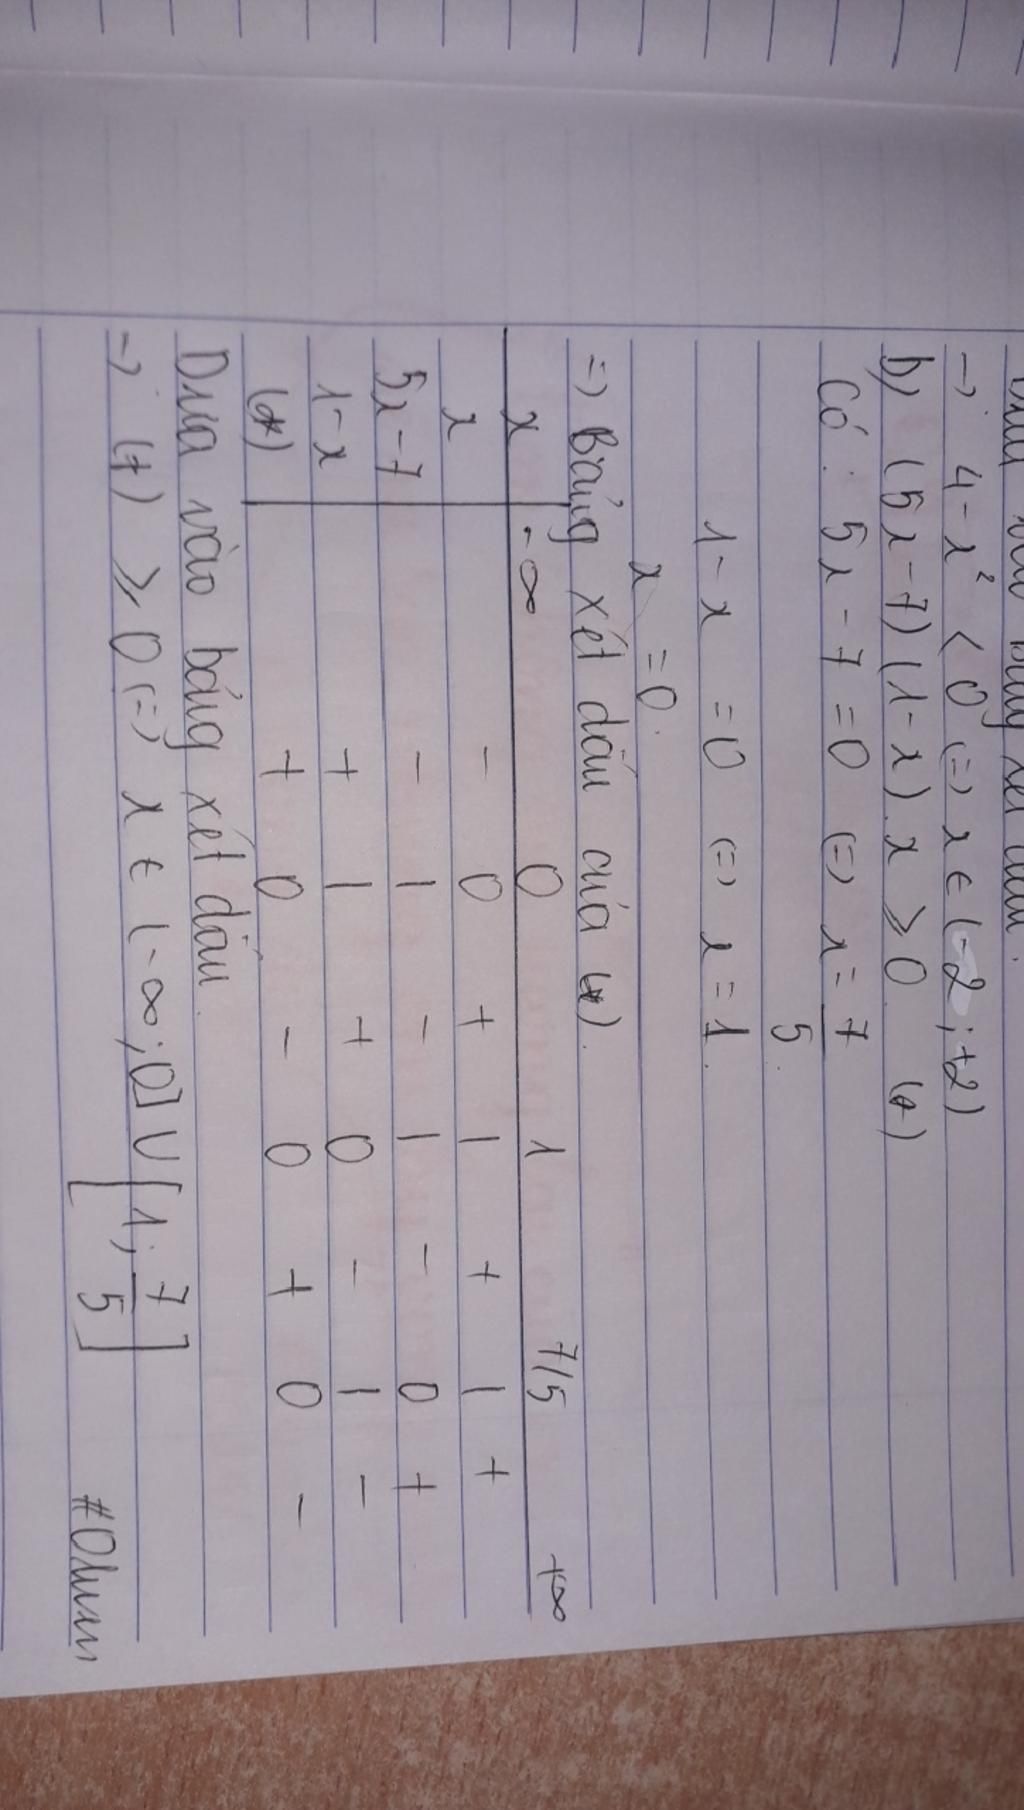 → 4-x² < 0 (=) x ∈ (-2 ; +2)
b) (5x-7)(1-x).x ≥ 0 (*)
Có : 5x-7 = 0 (=) x = 7/5.
1-x = 0 (=) x = 1.
x = 0.
=) Bảng xét dấu của (*).
x -∞ 0 1 7/5 +∞
x - 0 + | + | +
5x-7 - | - | - 0 +
1-x + | + 0 - | -
(*) + 0 - 0 + 0 -
Dựa vào bảng xét dấu.
→ (*) ≥ 0 (=) x ∈ (-∞ ; 0] U [1 ; 7/5]